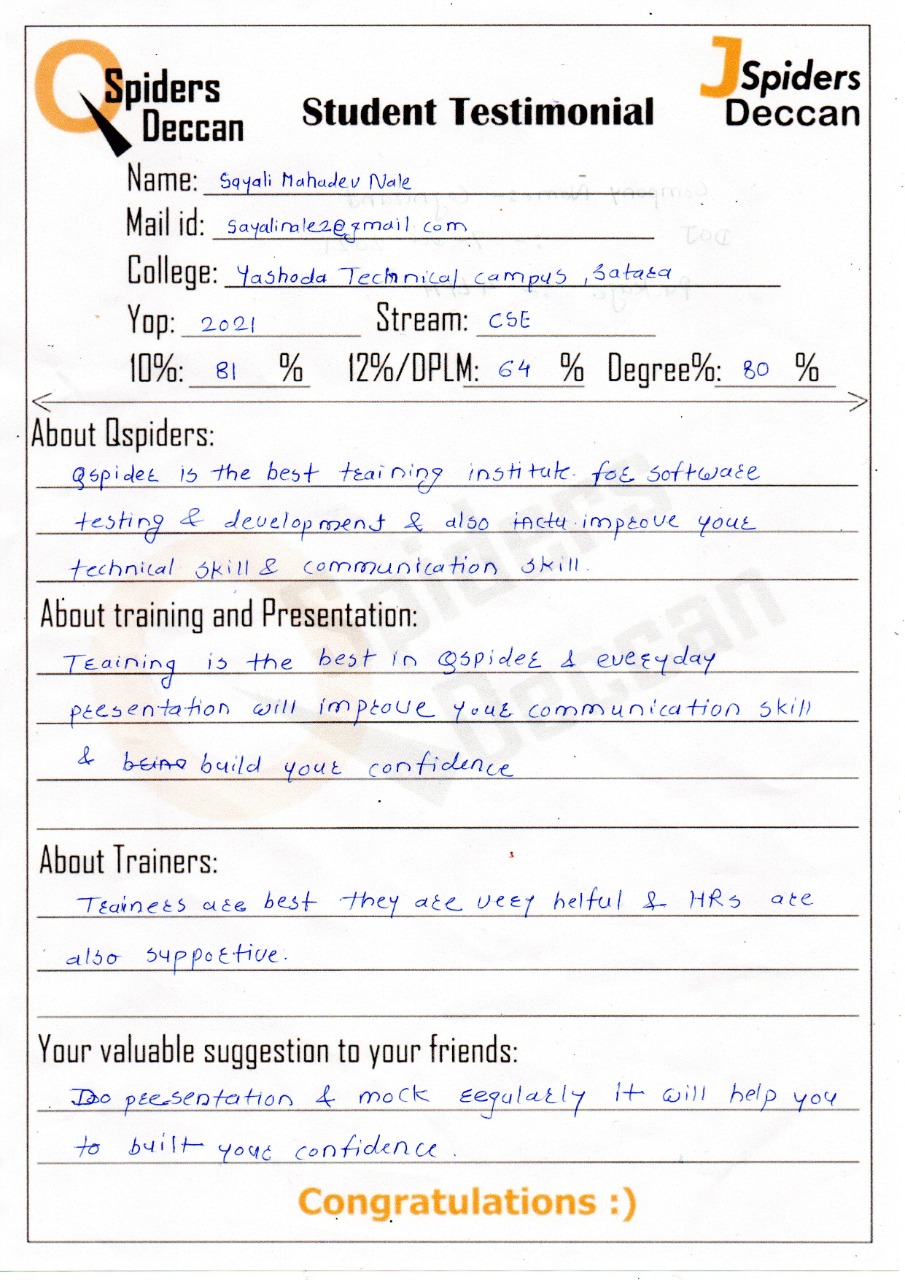 QSpiders Deccan
Student Testimonial
JSpiders Deccan
Name: Sayali Mahadev Nale
Mail id: Sayalinale2@gmail.com
College: Yashoda Technical campus, Satara
Yop: 2021 Stream: CSE
10%: 81 % 12%/DPLM: 64 % Degree%: 80 %
About Qspiders:
Qspider is the best training institute. for software
testing & development & also improve your
technical skill & communication skill.
About training and Presentation:
Training is the best in Qspider & everyday
presentation will improve your communication skill
& build your confidence
About Trainers:
Trainers are best they are very helful & HRs are
also supportive.
Your valuable suggestion to your friends:
Do presentation & mock regularly it will help you
to built your confidence.
Congratulations :)